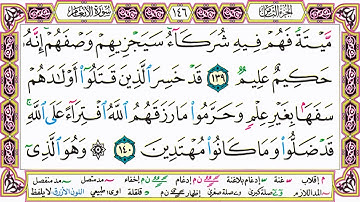 الجزء الثامن ١٤٦ سورة الأنعام
مَّيْتَةً فَهُمْ فِيهِ شُرَكَآءُ سَيَجْزِيهِمْ وَصْفَهُمْ إِنَّهُۥ
حَكِيمٌ عَلِيمٌ ١٣٩ قَدْ خَسِرَ ٱلَّذِينَ قَتَلُوٓا۟ أَوْلَٰدَهُمْ
سَفَهًۢا بِغَيْرِ عِلْمٍ وَحَرَّمُوا۟ مَا رَزَقَهُمُ ٱللَّهُ ٱفْتِرَآءً عَلَى ٱللَّهِ
قَدْ ضَلُّوا۟ وَمَا كَانُوا۟ مُهْتَدِينَ ١٤٠ وَهُوَ ٱلَّذِىٓ